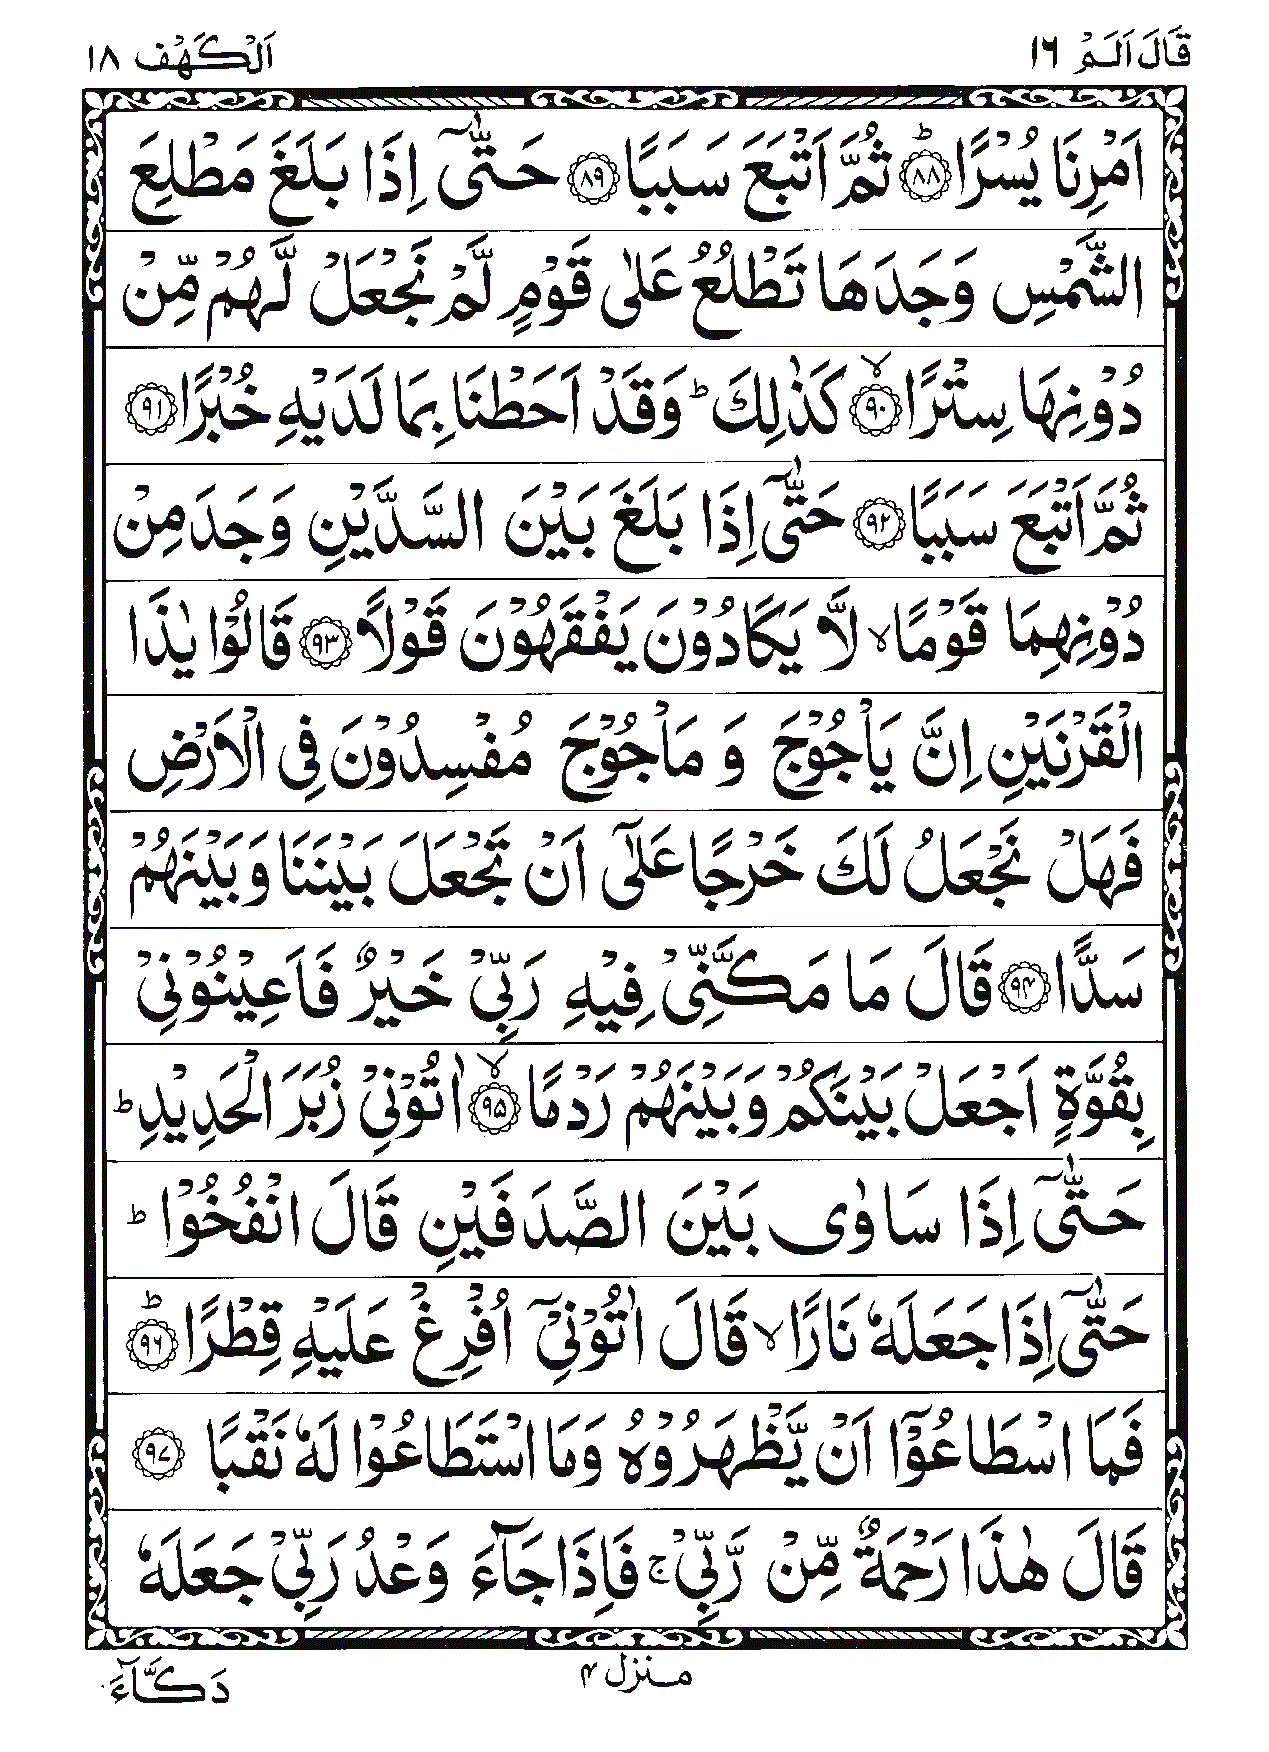 قَالَ اَلَمْ ١٦ اَلْكَهْف ١٨
اَمْرِنَا يُسْرًا ؕ﴿٨٨﴾ ثُمَّ اَتْبَعَ سَبَبًا ﴿٨٩﴾ حَتّٰۤى اِذَا بَلَغَ مَطْلِعَ
الشَّمْسِ وَجَدَهَا تَطْلُعُ عَلٰى قَوْمٍ لَّمْ نَجْعَلْ لَّهُمْ مِّنْ
دُوْنِهَا سِتْرًا ۙ﴿٩٠﴾ كَذٰلِكَ ؕ وَقَدْ اَحَطْنَا بِمَا لَدَيْهِ خُبْرًا ﴿٩١﴾
ثُمَّ اَتْبَعَ سَبَبًا ﴿٩٢﴾ حَتّٰۤى اِذَا بَلَغَ بَيْنَ السَّدَّيْنِ وَجَدَ مِنْ
دُوْنِهِمَا قَوْمًا ۙ لَّا يَكَادُوْنَ يَفْقَهُوْنَ قَوْلًا ﴿٩٣﴾ قَالُوْا يٰذَا
الْقَرْنَيْنِ اِنَّ يَاْجُوْجَ وَ مَاْجُوْجَ مُفْسِدُوْنَ فِى الْاَرْضِ
فَهَلْ نَجْعَلُ لَكَ خَرْجًا عَلٰۤى اَنْ تَجْعَلَ بَيْنَنَا وَبَيْنَهُمْ
سَدًّا ﴿٩٤﴾ قَالَ مَا مَكَّنِّىْ فِيْهِ رَبِّىْ خَيْرٌ فَاَعِيْنُوْنِىْ
بِقُوَّةٍ اَجْعَلْ بَيْنَكُمْ وَبَيْنَهُمْ رَدْمًا ۙ﴿٩٥﴾ اٰتُوْنِىْ زُبَرَ الْحَدِيْدِ ؕ
حَتّٰۤى اِذَا سَاوٰى بَيْنَ الصَّدَفَيْنِ قَالَ انْفُخُوْا ؕ
حَتّٰۤى اِذَا جَعَلَهٗ نَارًا ۙ قَالَ اٰتُوْنِىْۤ اُفْرِغْ عَلَيْهِ قِطْرًا ؕ﴿٩٦﴾
فَمَا اسْطَاعُوْۤا اَنْ يَّظْهَرُوْهُ وَمَا اسْتَطَاعُوْا لَهٗ نَقْبًا ﴿٩٧﴾
قَالَ هٰذَا رَحْمَةٌ مِّنْ رَّبِّىْ ۚ فَاِذَا جَآءَ وَعْدُ رَبِّىْ جَعَلَهٗ
منزل ۴
دَكَّآءَ